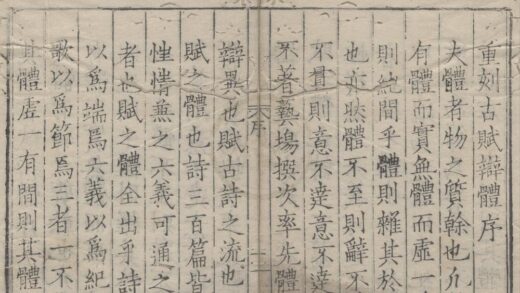 重刻古賦辯體序
夫體者物之質幹也凡
有體而實無體而虛一
則純間乎體則雜其於
也亦然體不至則辭不
不貫則意不達意不達
不著藝場撰次率先體
序
辯異也賦古詩之流也
賦之體也詩三百篇皆
性情兼之六義可通之
者也賦之體全出乎詩
以爲端焉六義以爲紀
歌以爲節焉三者一不
體虛一有間則其體